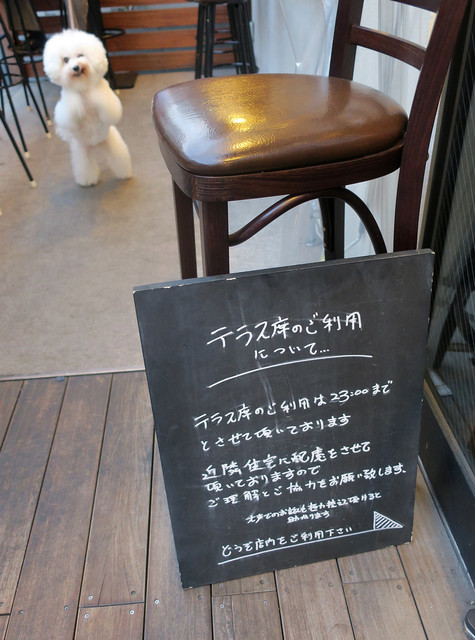 テラス席のご利用
について…
テラス席のご利用は23:00まで
とさせて頂いております
近隣住宅に配慮をさせて
頂いておりますので
ご理解とご協力をお願い致します
大声でのお話もお控え頂けると
助かります
どうぞ店内をご利用下さい